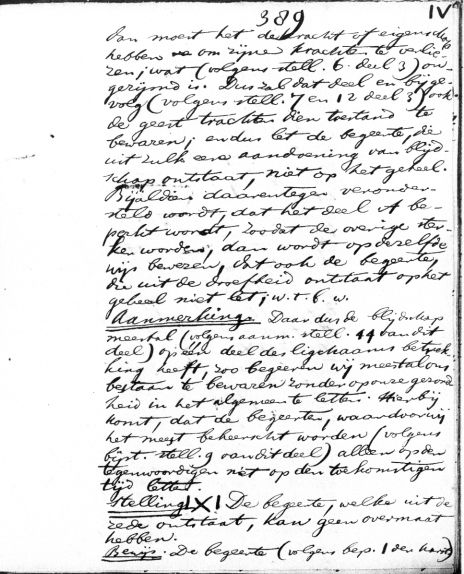 389
IV
dan moest het de kracht of eigenschap
hebben om zijne krachten te verlie-
zen; wat (volgens stell. 6 deel 3) on-
gerijmd is. Dus zal dat deel en bijge-
volg (volgens stell. 7 en 12 deel 3) ook
de geest trachten dien toestand te
bewaren; en dus let de begeerte, die
uit zulk eene aandoening van blijd-
schap ontstaat, niet op het geheel.
Bijaldien daarentegen veronder-
steld wordt, dat het deel A be-
perkt wordt, zoodat de overige ster-
ker worden, dan wordt op dezelfde
wijs bewezen, dat ook de begeerte,
die uit de droefheid ontstaat op het
geheel niet let; w. t. b. w.
Aanmerking. Daar dus de blijdschap
meestal (volgens aanm. stell. 44 van dit
deel) op één deel des ligchaams betrek-
king heeft, zoo begeeren wij meestal ons
bestaan te bewaren zonder op onze gezond
heid in het algemeen te letten. Hierbij
komt, dat de begeerten, waardoor wij
het meest beheerscht worden (volgens
bijst. stell. 9 van dit deel) alleen op den
tegenwoordigen niet op den toekomstigen
tijd letten.
Stelling LXI De begeerte, welke uit de
rede ontstaat, kan geen overmaat
hebben.
Bewijs. De begeerte (volgens bep. 1 der harts)